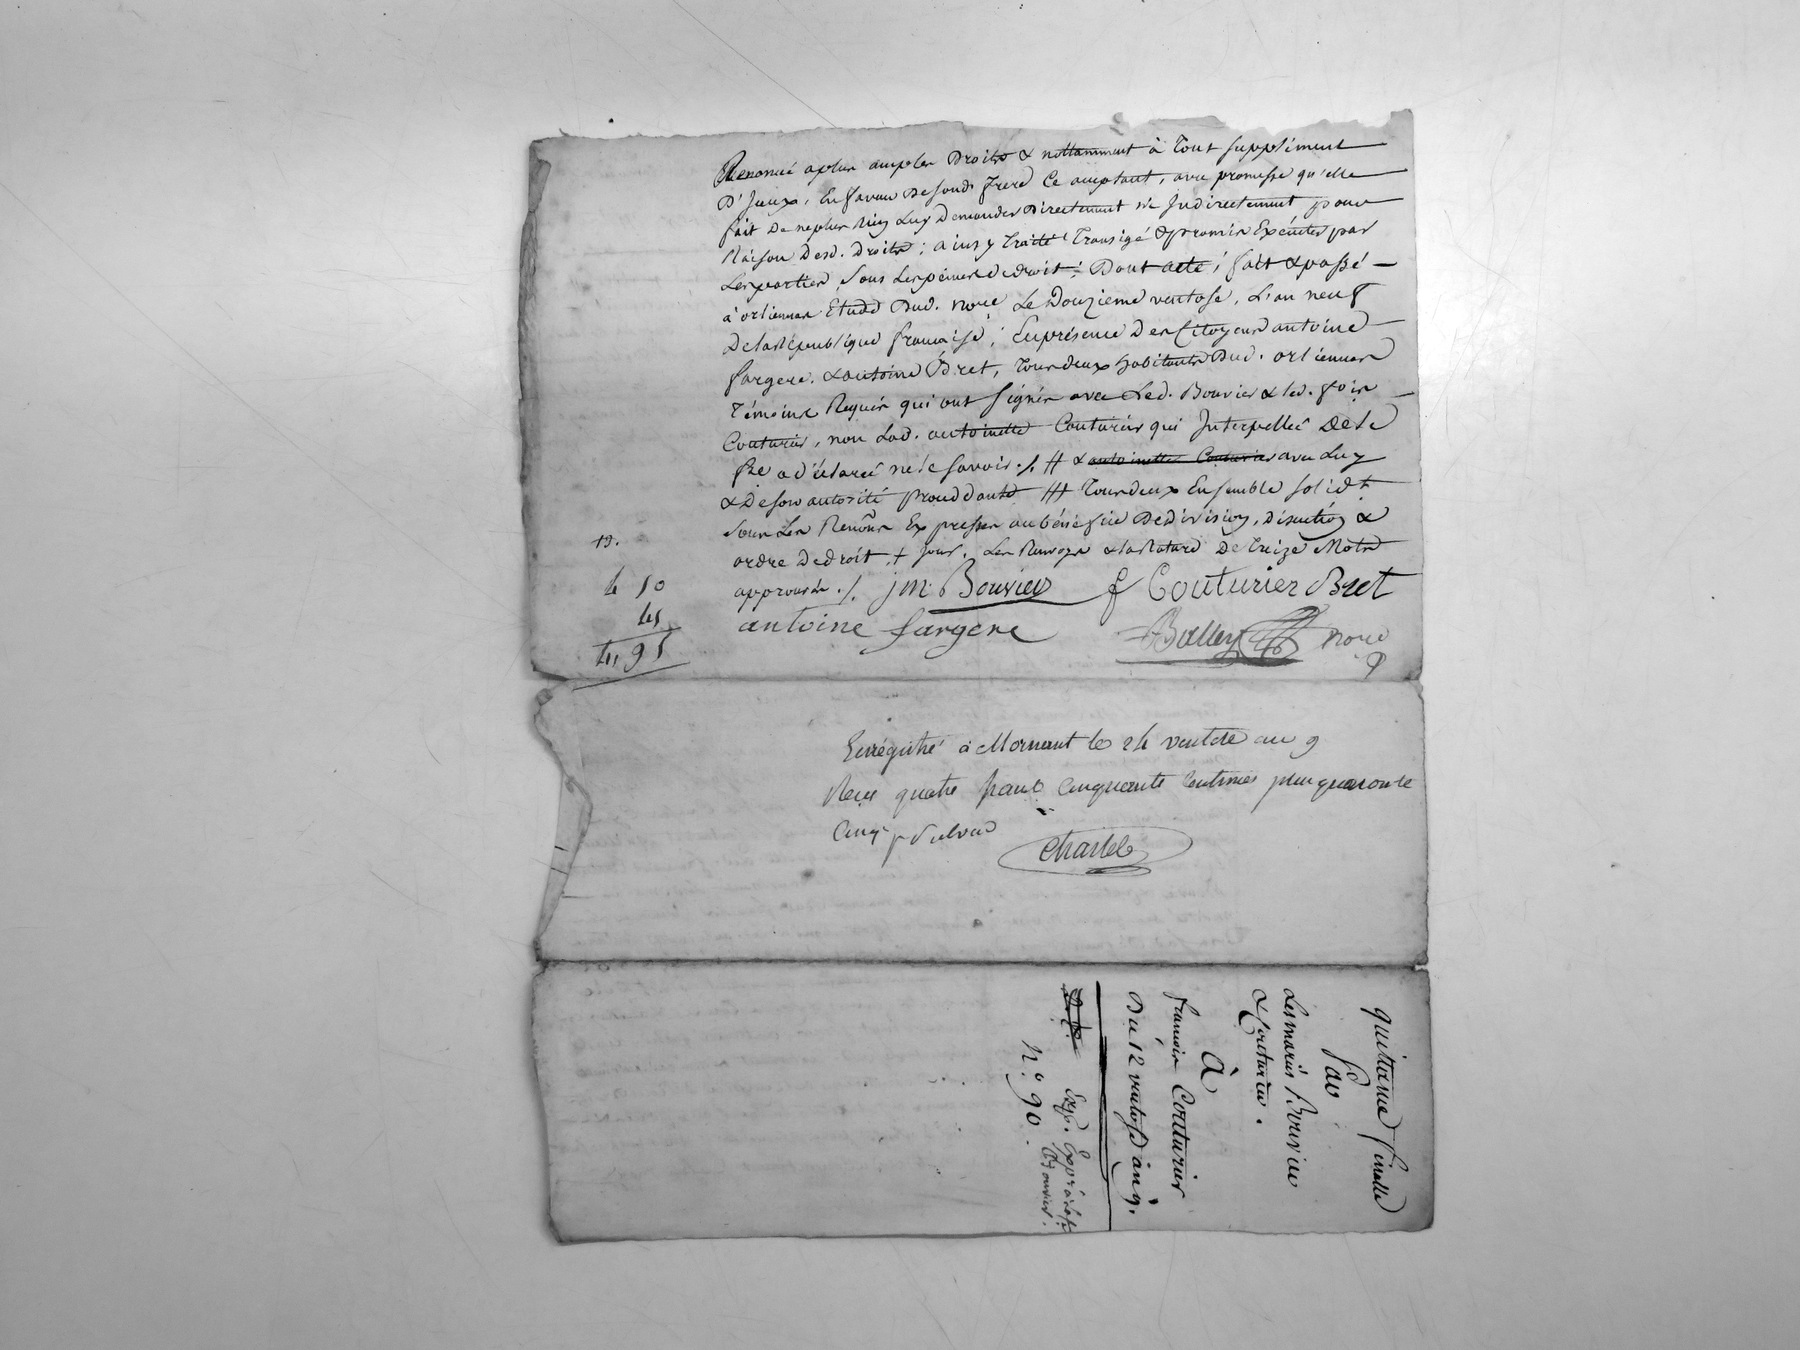 Renoncé a plus amples Droits & nottamment à Tout supplément
D'Iceux, En faveur De sond. frere Ce acceptant, avec promesse qu'elle
fait De ne plus Rien Luy Demander Directement n'e Indirectement pour
Raison Desd. Droits ; ainsy Traité Transigé & promis Exécuter par
Les parties, Sous Les peines De droit ; Dont acte ; fait & passé
à orlienas Etude Dud. nore Le Douzieme ventose, L'an neuf
De la République française ; En présence Des Citoyens antoine
fargere, & antoine Bret, Tous deux habitants Dud. orlienas
Témoins Requis qui ont signés avec Led. Bouvier & led. fois
Couturier, non Lad. antoinette Couturier qui Interpellée De le
fre a déclaré ne le savoir ./. # & antoinette Couturier avec Luy
& De son autorité procedante ## Tous deux Ensemble solidt
sous Les Renons Expresses au bénéfice De division, discution &
ordre De droit, + jour. Les Renvoys & la Rature De Treize Mots
approuvés ./. jm. Bouvier f Couturier Bret
antoine fargere Balley nore
19.
4 50
45
4,95
Enrégistré à Mornant le 24 ventose an 9
Reçu quatre francs Cinquante Centimes plus quarante
Cinq pr Subvon
Chastel
quittance finalle
par
Les mariés Bouvier
& Couturier.
à
françois Couturier
Du 12 ventose an 9.
Exp. Exp. à
Bouvier.
N.° 90.